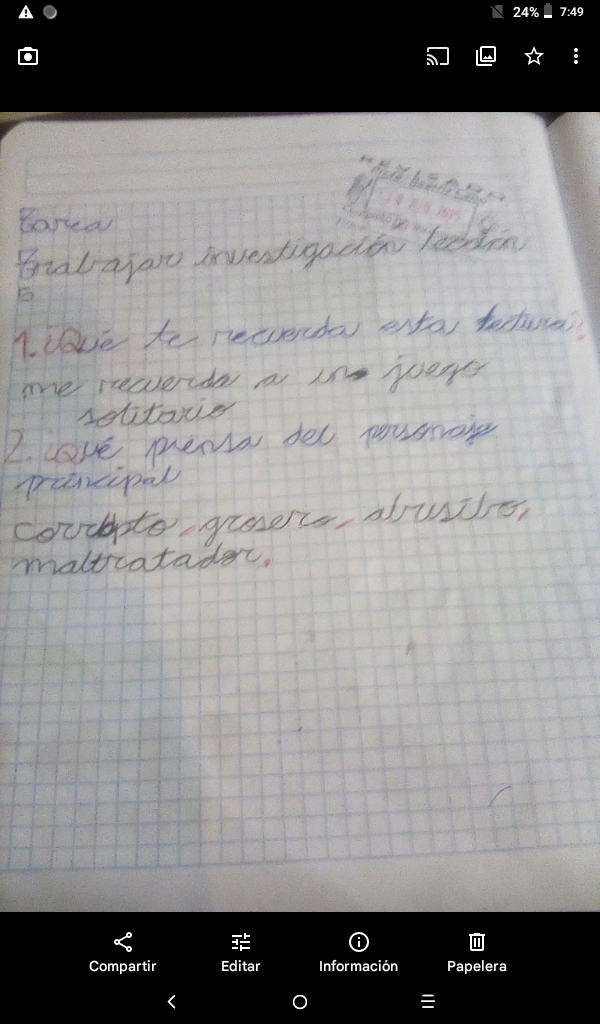 24% 7:49
REVISADO
Tarea
Trabajar investigación lección
5
1. ¿Qué te recuerda esta lectura?
me recuerda a un juego
solitario
2. ¿Qué piensa del personaje
principal
corrupto, grosero, abusibo,
maltratador.
Compartir Editar Información Papelera